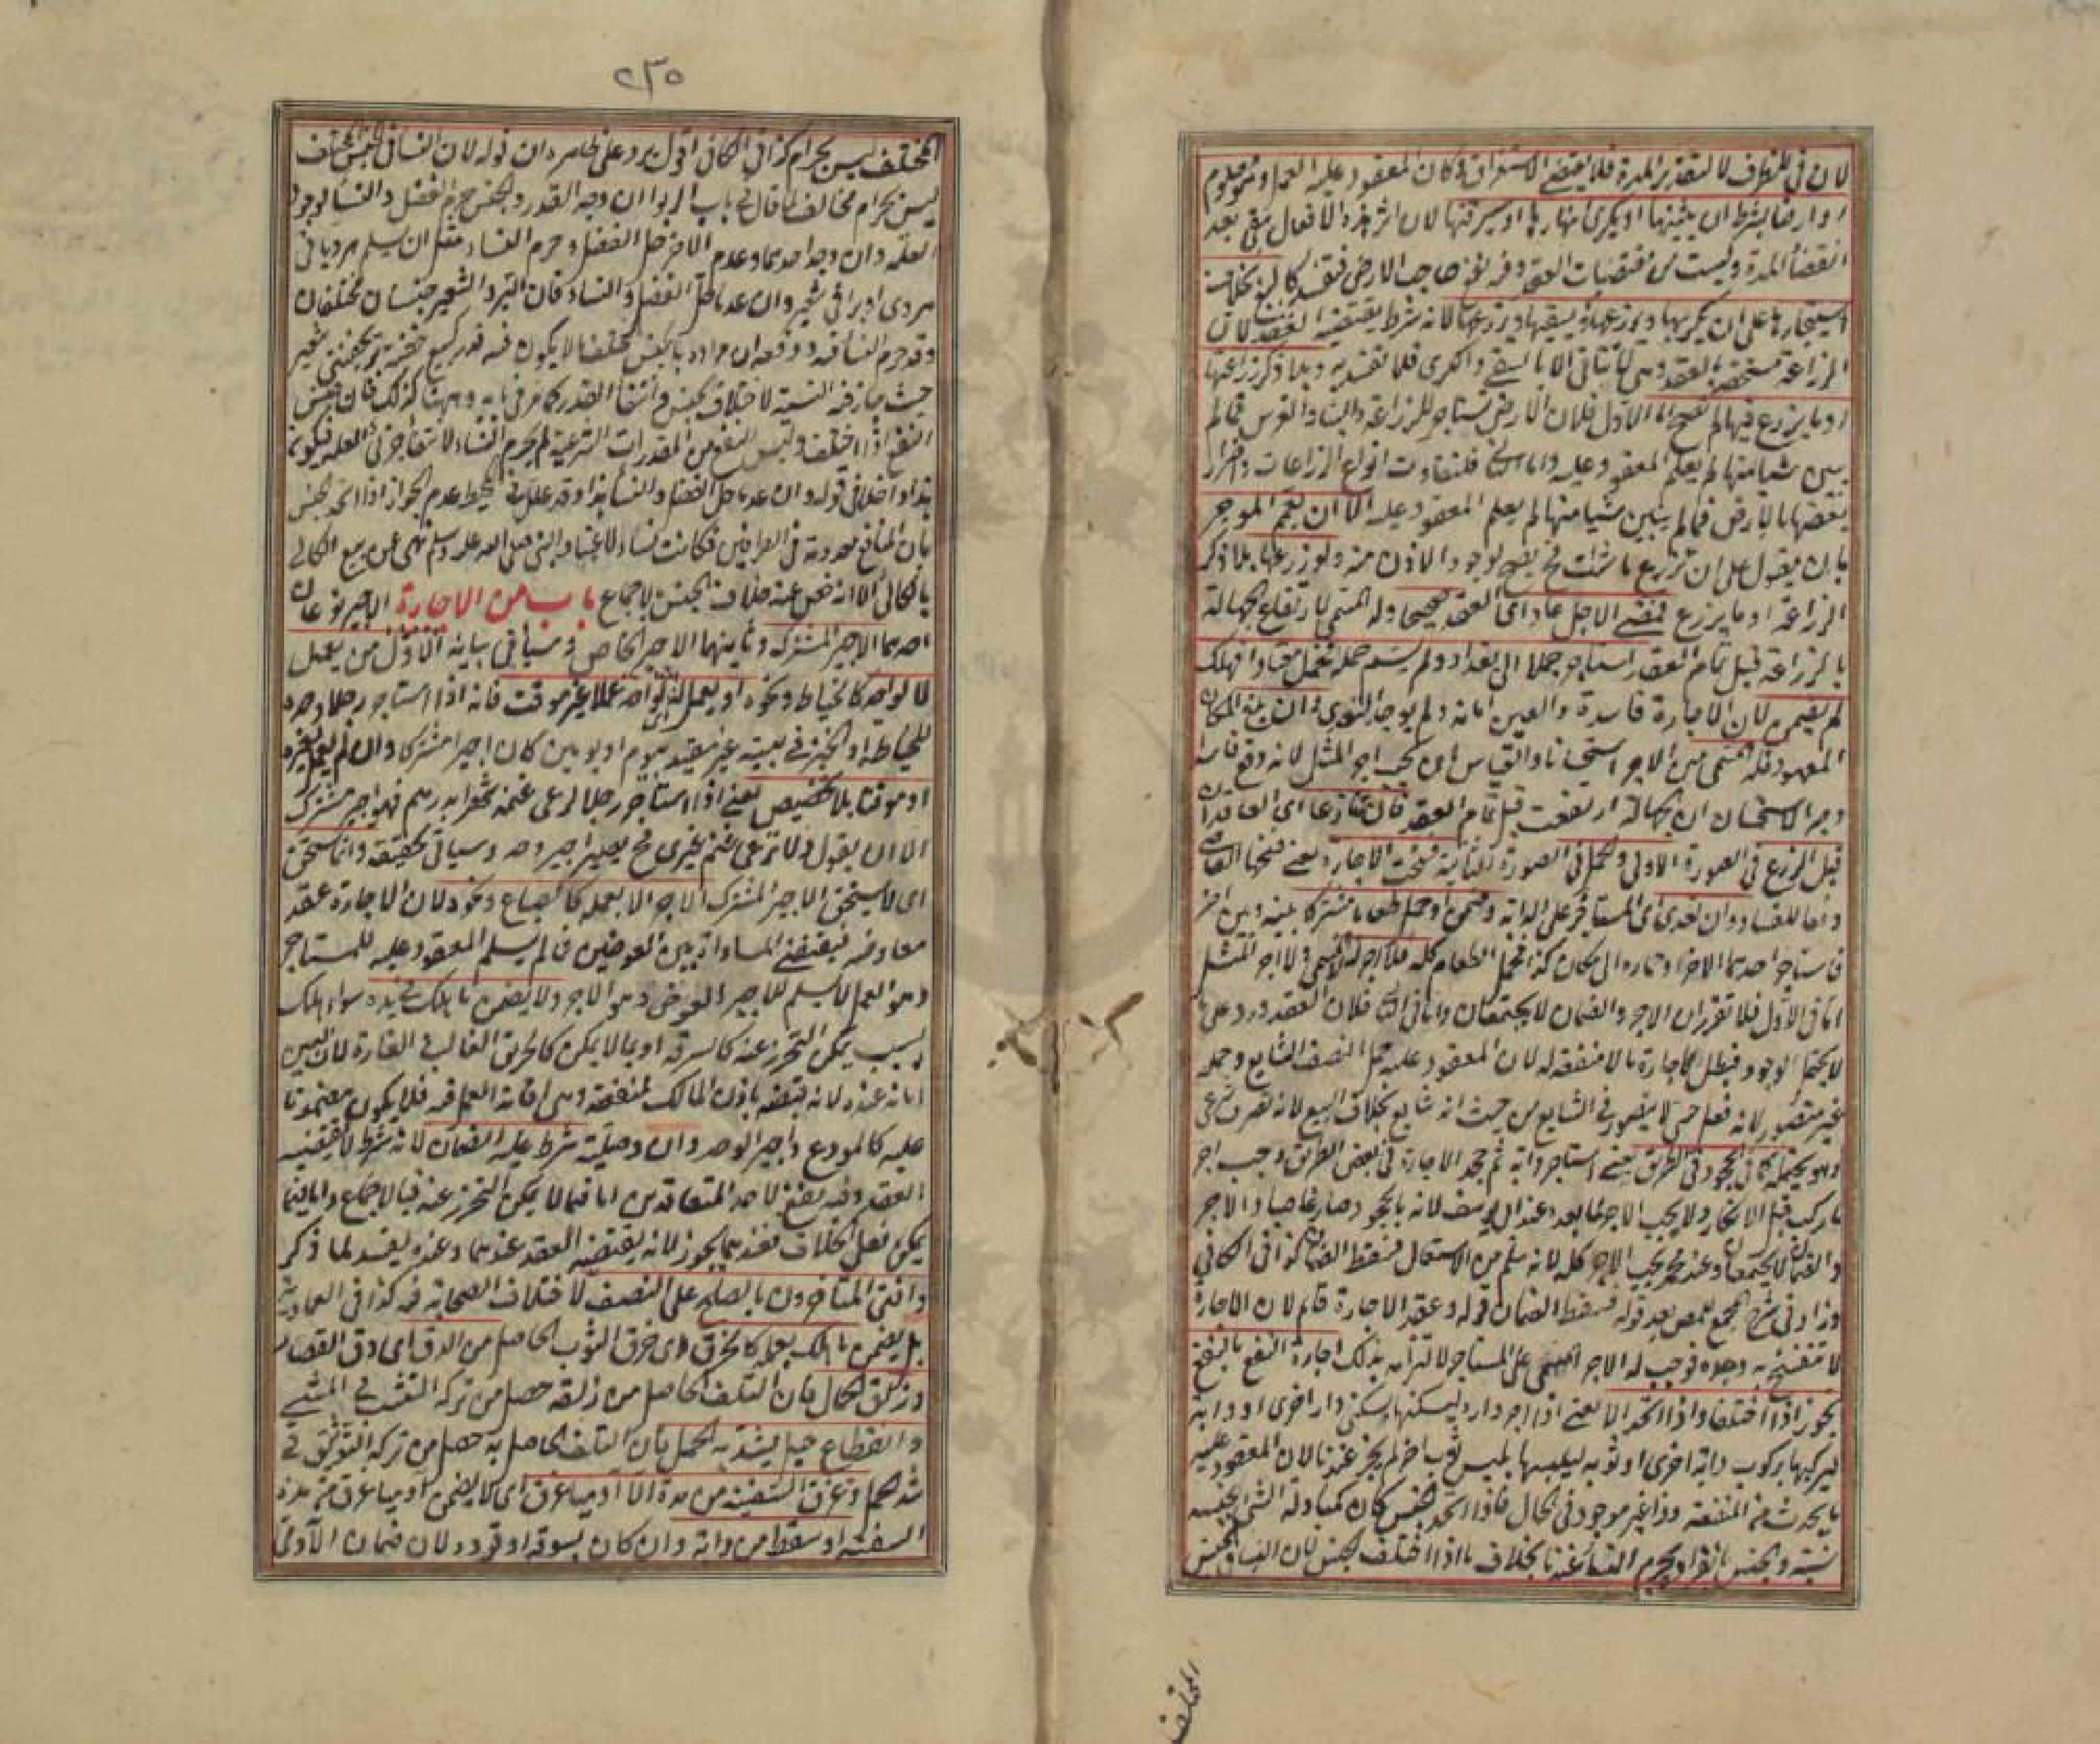 لان في للظرف لا لتقدير المدة فلا يقتضي الاستغراق فكان المعقود عليه العمل وهو معلوم
او ارضا بشرط ان يثنيها او يكري انهارها او يسرقنها لان اثر هذه الافعال يبقى بعد
انقضاء المدة وليست من مقتضيات العقد وفيه نفع صاحب الارض فتفسد كالبيع بخلاف
استيجارها على ان يكربها ويزرعها او يسقيها ويزرعها لانه شرط يقتضيه العقد لان
الزراعة مستحقة بالعقد وهي لا تتاتى الا بالسقي والكرى فلا تفسد به وبلا ذكر زراعتها
او ما يزرع فيها لم تصح اما الاول فلان الارض تستاجر للزراعة والبناء والغرس فما لم
يبين شيا منها لم يعلم المعقود عليه واما الثاني فلتفاوت انواع الزراعات واضرار
بعضها بالارض فما لم يبين شيا منها لم يعلم المعقود عليه الا ان يعمم الموجر
بان يقول على ان تزرع ما شئت فح يصح لوجود الاذن منه ولو زرعها بلا ذكر
الزراعة او ما يزرع فمضى الاجل عاد اى العقد صحيحا وله المسمى لارتفاع الجهالة
بالزراعة قبل تمام العقد استاجر جملا الى بغداد ولم يسم حمله فحمل معتادا فهلك
لم يضمن لان الاجارة فاسدة والعين امانة ولم يوجد التعدي وان بلغ المكان
المعهود فله المسمى من الاجر استحسانا والقياس ان يجب اجر المثل لانه وقع فاسدا
وجه الاستحسان ان الجهالة ارتفعت قبل تمام العقد فان تنازعا اى العاقدان
قبل الزرع في الصورة الاولى والحمل في الصورة الثانية فسخت الاجارة يعني فسخها القاضي
دفعا للفساد وان تعدى اى المستاجر على الدابة وضمن او حمل طعاما مشتركا بينه وبين اخر
فاستاجر احدهما الاخر او حماره الى مكان كذا فحمل الطعام كله فلا اجر له لا المسمى ولا اجر المثل
اما في الاول فلا تقرر ان الاجر والضمان لا يجتمعان واما في الثاني فلان العقد ورد على ما
لا يحتمل الوجود فبطل كاجارة ما لا منفعة له لان المعقود عليه حمل النصف الشايع وحمله
غير متصور لانه فعل حسي لا يتصور في الشايع من حيث انه شايع بخلاف البيع لانه تصرف شرعي
وهو يحتمله كما في الجحود في الطريق يعني استاجر دابة ثم جحد الاجارة في بعض الطريق وجب اجر
ما ركب قبل الانكار ولا يجب الاجر لما بعده عند ابي يوسف لانه بالجحود صار غاصبا والاجر
والضمان لا يجتمعان وعند محمد يجب الاجر كله لانه سلم من الاستعمال فسقط الضمان كذا في الكافي
وزاد في شرح المجمع للمصنف بعد قوله فسقط الضمان قوله وعقد الاجارة قائم لان الاجارة
لا تنفسخ به وحده فوجب له الاجر المسمى على المستاجر لالتزامه بذلك اجارة النفع بالنفع
تجوز اذا اختلفا واذا اتحدا لا يعني اذا اجر داره ليسكنها بسكنى دار اخرى او دابة
ليركبها بركوب دابة اخرى او ثوبه ليلبسها بلبس ثوب اخر لم يجز عندنا لان المعقود عليه
ما يحدث من المنفعة وذا غير موجود في الحال فاذا اتحد الجنس كان كمبادلة الشي بجنسه
نسية والجنس بانفراده يحرم النساء عندنا بخلاف ما اذا اختلف الجنس لان النساء في الجنس
المختلف
٢٣٥
المختلف ليس بحرام كذا في الكافي اقول يرد على ظاهره ان قوله لان النساء في الجنس المختلف
ليس بحرام مخالف لما قال في باب الربوا ان وجد القدر والجنس حرم الفضل والنساء لوجود
العلة وان وجد احدهما وعدم الاخر حل الفضل وحرم النساء مثل ان يسلم هرويا في
هروى او برا في شعير وان عدما حل الفضل والنساء فان البر والشعير جنسان مختلفان
وقد حرم النساء فيه ودفعه ان مراده بالجنس المختلف ما لا يكون فيه قدر كبيع حفنة بر بحفنتي شعير
حيث جاز فيه النسية لاختلاف الجنس وانتفاء القدر كما مر في بابه وههنا كذلك فان جنس
النفع اذا اختلف وليس النفع من المقدرات الشرعية لم يحرم النساء لانتفاء جزئي العلة فيكون
هذا داخلا في قوله وان عدما حل الفضل والنساء هذا وقد علل في المحيط عدم الجواز اذا اتحد الجنس
بان المنافع معدومة في العوضين فكانت نساء لا عينا والنبي صلى الله عليه وسلم نهى عن بيع الكالي
بالكالي الا انه خص عنه خلاف الجنس بالاجماع باب من الاجارة الاجير نوعان
احدهما الاجير المشترك وثانيهما الاجير الخاص وسياتي بيانه الاول من يعمل
لا لواحد كالخياط ونحوه او يعمل له اى لواحد عملا غير موقت فانه اذا استاجر رجلا وحده
للخياطة او الخبز في بيته غير مقيد بيوم او يومين كان اجيرا مشتركا وان لم يعمل لغيره
او موقتا بلا تخصيص يعني اذا استاجر رجلا لرعي غنمه شهرا بدرهم فهو اجير مشترك
الا ان يقول ولا ترعى غنم غيري فح يصير اجير وحد وسياتي تحقيقه وانما يستحق
اى لا يستحق الاجير المشترك الاجر الا بعمله كالصباغ ونحوه لان الاجارة عقد
معاوضة فيقتضي المساواة بين العوضين فما لم يسلم المعقود عليه للمستاجر
وهو العمل لا يسلم للاجير العوض وهو الاجر ولا يضمن ما هلك في يده سواء هلك
بسبب يمكن التحرز عنه كالسرقة او بما لا يمكن كالحريق الغالب والغارة لان العين
امانة عنده لانه قبضه باذن المالك لمنفعته وهي اقامة العمل فيه فلا يكون مضمونا
عليه كالمودع واجير الوحد وان وصلية شرط عليه الضمان لانه شرط لا يقتضيه
العقد وفيه نفع لاحد المتعاقدين اما فيما لا يمكن التحرز عنه فبالاجماع واما فيما
يمكن فعلى الخلاف فعندهما يجوز لانه يقتضيه العقد عندهما وعنده يفسد لما ذكر
وافتى المتاخرون بالصلح على النصف لاختلاف الصحابة فيه كذا في العمادية
بل يضمن ما هلك بعمله كالخرق اى خرق الثوب الحاصل من الدق اى دق القصار
وزلق الحمال فان التلف الحاصل من زلقه حصل من تركه التثبت في المشي
وانقطاع حبل يشد به الحمل فان التلف الحاصل به حصل من تركه التوثيق في
شد الحمل وغرق السفينة من مده الا آدميا غرق اى لا يضمن آدميا غرق من مده
السفينة او سقط من دابة وان كان بسوقه او قوده لان ضمان الآدمي